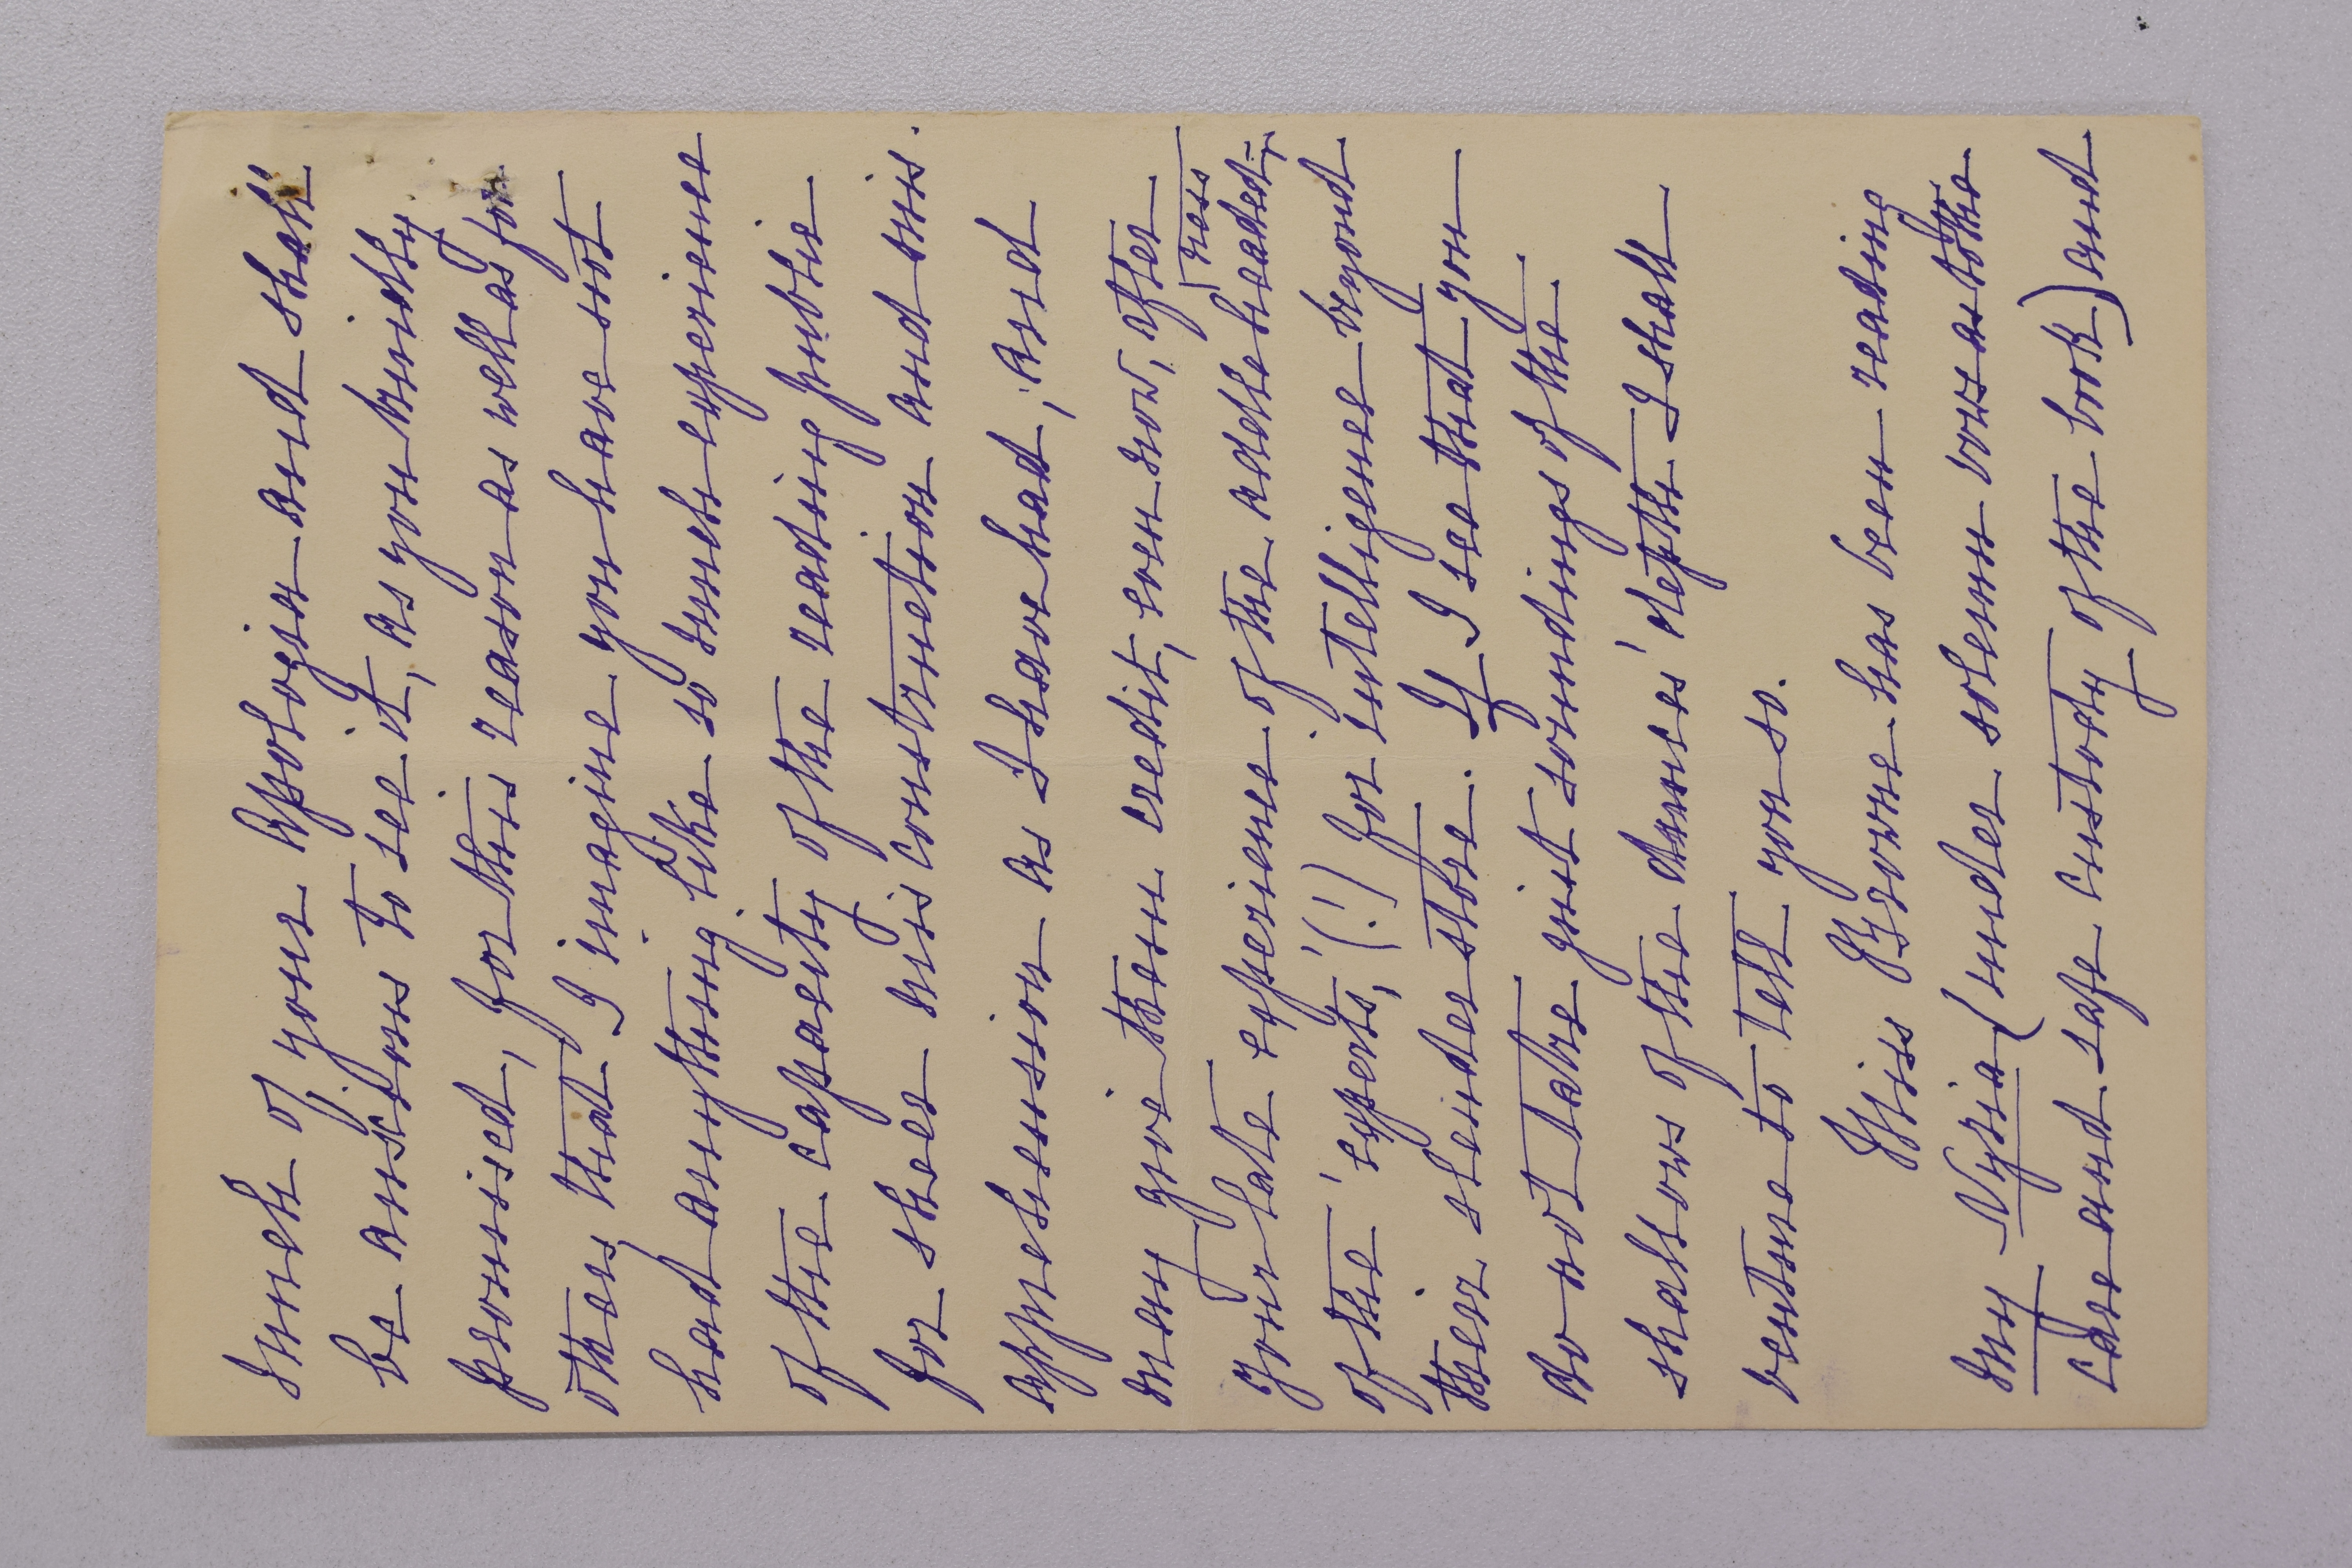 much of your Apologia and shall
be anxious to see it, as you kindly
promised, for this reason as well as for
others that I imagine you have not
had anything like so much experience
of the capacity of the reading public
for sheer misconstruction and mis-
apprehension as I have had; and
may give them credit, even now, after
your late experience of the addleheaded-
ness
of the 'experts,' (!) for intelligence beyond
their slender store. If I see that you
do not take quit soundings of the
shallows of the dunces' depths I shall
venture to tell you so.
Miss Browne has been reading
my Nyria (under solemn vows as to the
care and safe custody of the book) and